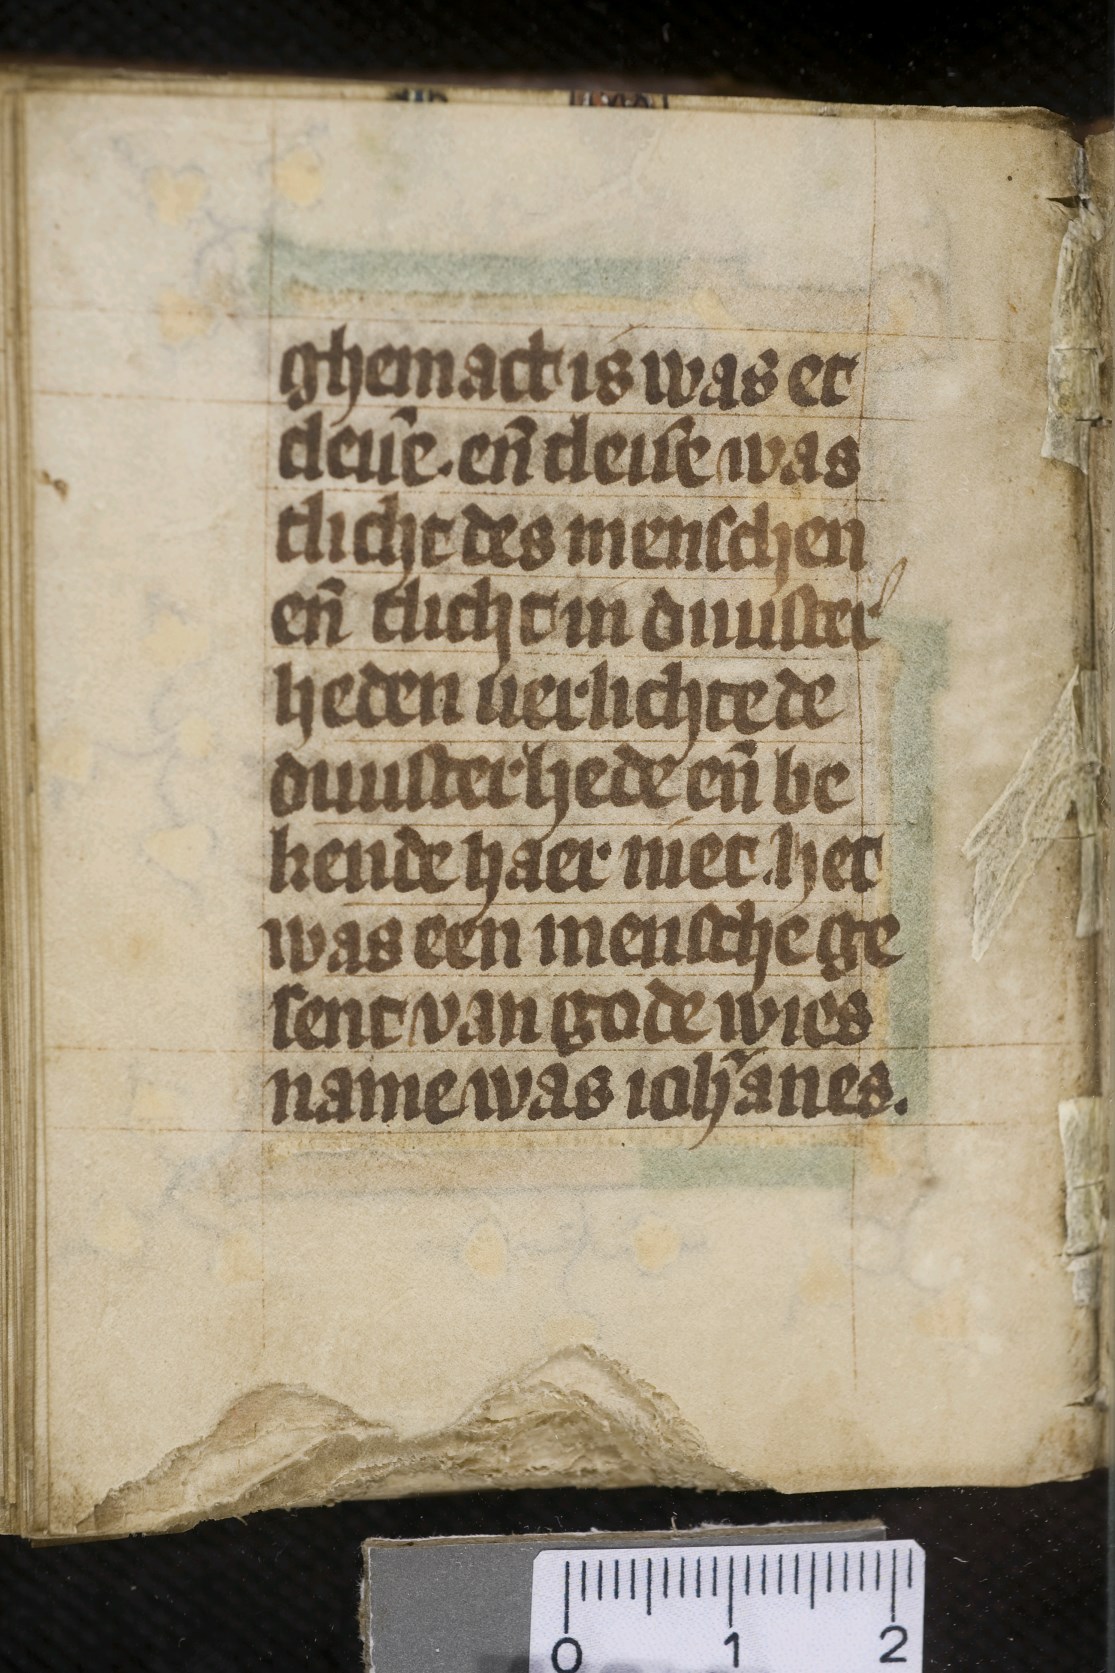 ghemact is was et
cleuē. en̄ cleuē was
tlicht des menschen
en̄ tlicht in duuster
heden verlichte de
duusterhede en̄ be
kende haer niet. het
was een mensche ge
sent van gode wies
name was ioh̄anes.
0 1 2